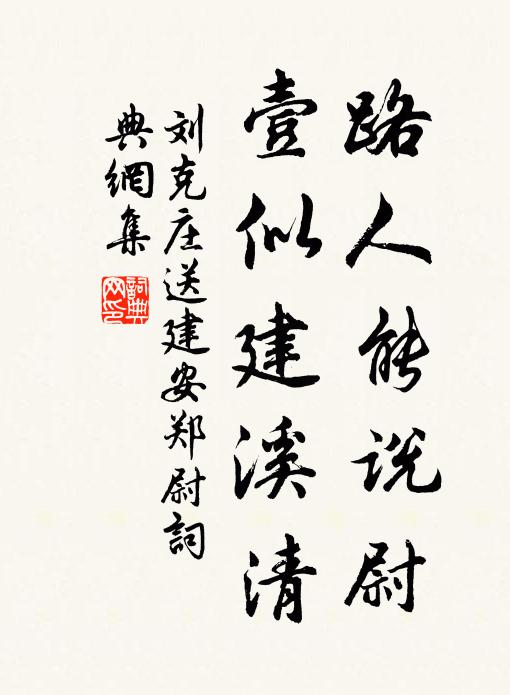 路人能说尉
壹似建溪清
刘克庄送建安郑尉詞
典網集
詞典
网印